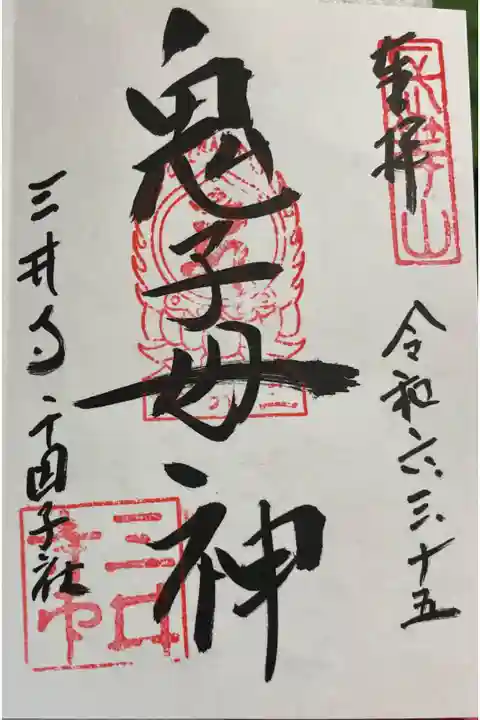 長等山
奉拝
令和六.三.十五
鬼子母神
三井寺 千団子社
三井寺印